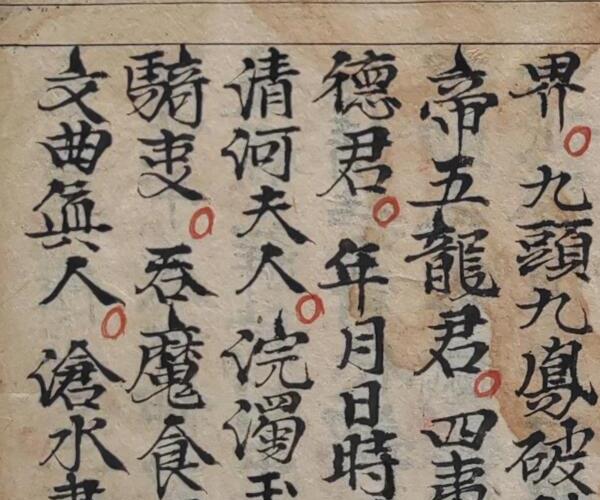 界○九頭九鳳破
帝五龍君○四
德君○年月日時
清河夫人○浣濁玉
騎吏○吞魔食
文曲眞人○滄水